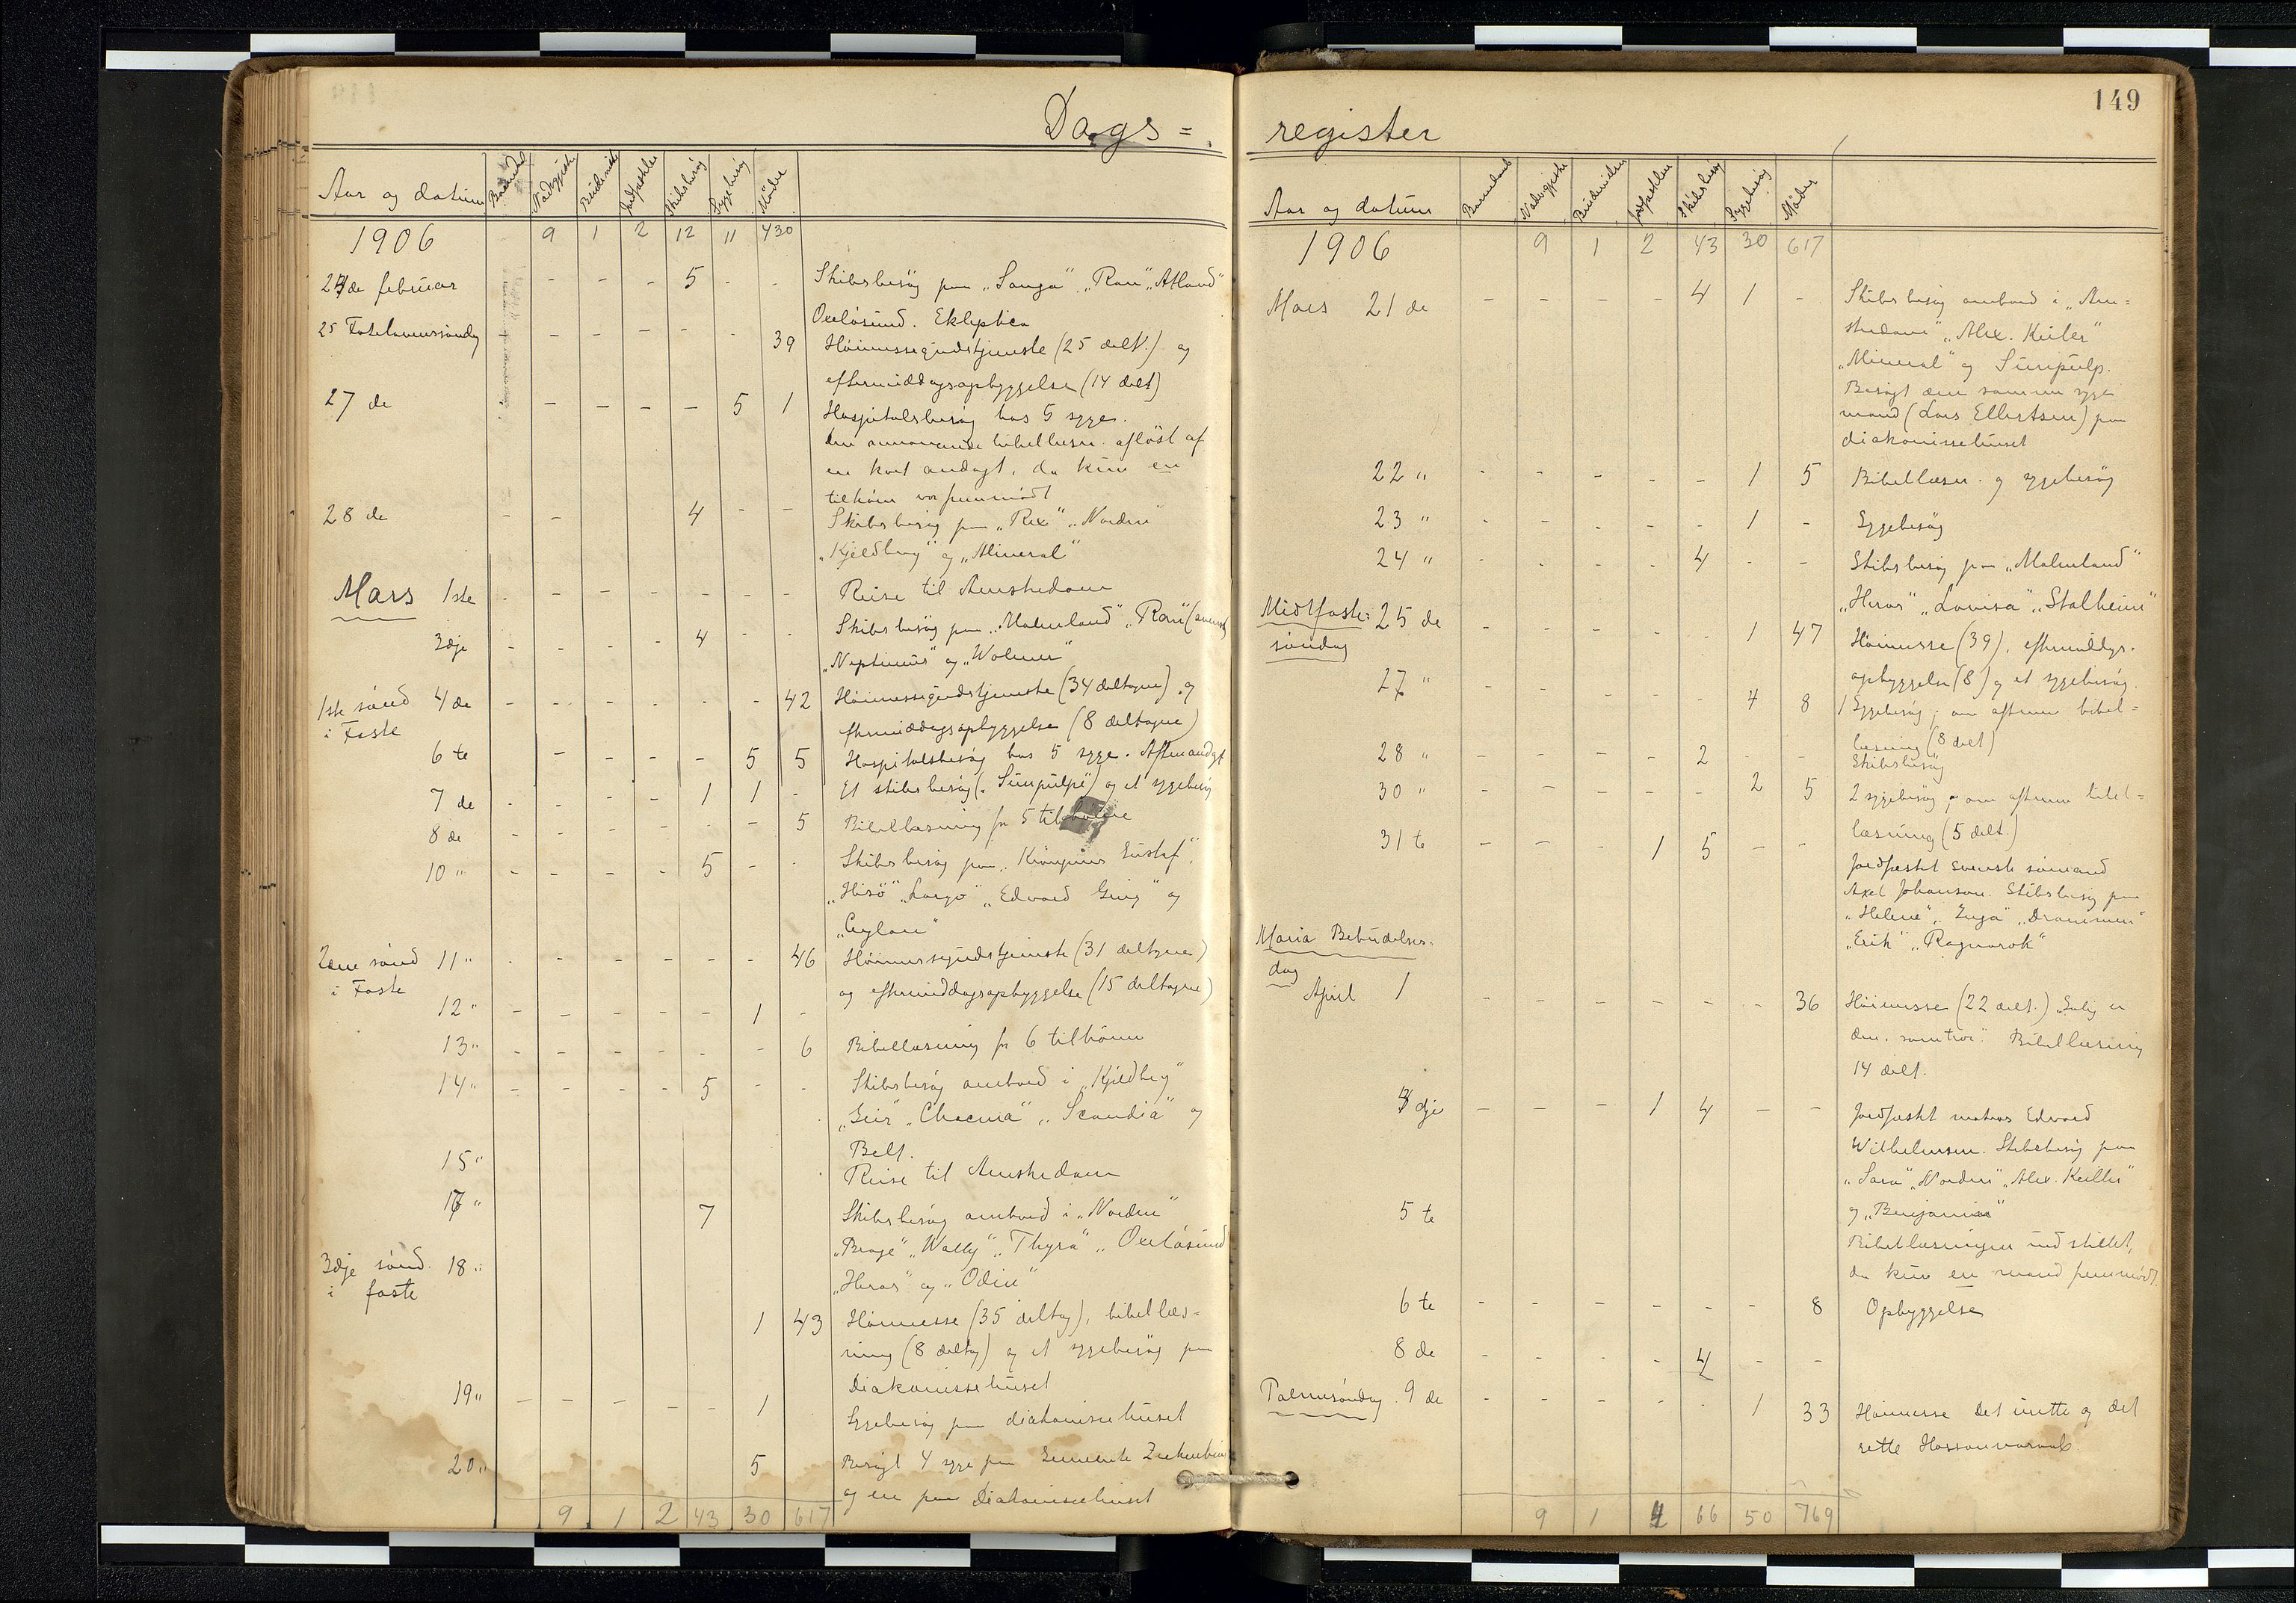 Dags =
Aar og datum Barnedaab Nadvgjæste Brudevielse Jordfæstelser Skibsbesög Sygebesög Möder
1906 9 1 2 12 11 430
24de februar - - - 5 - - Skibsbesög paa „Sanga" „Ran" „Atland"
Oxelösund. Ekliptica
25 Fastelavnssöndag - - - - - - 39 Höimessegudstjeneste (25 delt.) og
eftermiddagsopbyggelse (14 delt)
27 de - - - - 5 1 Hospitalsbesög hos 5 syge.
Den annoncerede bibellæsn. aflöst af
en kort andagt, da kun en
tilhörer var fremmödt
28 de - - 4 - - Skibsbesög paa „Rex" „Norden"
„Kjeldberg" og „Mineral"
Mars 1ste - - - - - - - Reise til Amsterdam
3dje - - - - 4 - - Skibsbesög paa „Malmland" „Ran" (svensk)
„Neptunus" og „Wolmer"
1ste sönd 4 de - - - - - - 42 Höimessegudstjeneste (34 deltagere) og
i Faste
eftermiddagsopbyggelse (8 deltagere)
6 te - - - - 5 5 Hospitalsbesög hos 5 syge. Aftenandagt
7 de - - - - 1 1 - Et skibsbesög („Sunpulpe") og et sygebesög
8 de - - - - - - 5 Bibellæsning for 5 tilhörere
10 " - - - - 5 - - Skibsbesög paa „Kronprins Gustaf",
„Hisö" „Largo" „Edvard Grieg" og
„Ceylon"
2den sönd 11 " - - - - - - 46 Höimessegudstjeneste (31 deltagere)
i Faste
og eftermiddagsopbyggelse (15 deltagere)
12 " - - - - - 1 -
13 " - - - - - - 6 Bibellæsning for 6 tilhörere
14 " - - - - 5 - - Skibsbesög ombord i „Kjeldberg"
„Geir" „Chacma" „Scandia" og
Belt.
15 " Reise til Amsterdam
17 " 7 Skibsbesög ombord i „Norden"
„Brage" „Wally" „Thyra" „Oxelösund
3dje sönd. 18 " „Heros" og „Odin"
i faste
1 43 Höimesse (35 deltag), bibellæs-
ning (8 deltag) og et sygebesög paa
Diakonissehuset
19 " - - - - - 1 Sygebesög paa diakonissehuset
20 " 5 Besögt 4 syge paa Gemeente Ziekenhuis
og en paa Diakonissehuset
9 1 2 43 30 617
149
register
Aar og datum Barnedaab Nadvgjæste Brudevielser Jordfæstelser Skibsbesög Sygebesög Möder
1906 9 1 2 43 30 617
Mars 21 de - - - - 4 1 - Skibsbesög ombord i „Am-
sterdam" „Alex. Keiler"
„Mineral" og Sunpulp.
Besögt den samme syge
mand (Lars Ellertsen) paa
diakonissehuset
22 " - - - - - 1 5 Bibellæsn. og sygebesög
23 " - - - - - 1 - Sygebesög
24 " - - - - 4 - - Skibsbesög paa „Malmland"
„Heros" „Lovisa" „Stalheim"
Midtfaste= 25 de - - - - - 1 47 Höimesse (39), eftermiddgs-
söndag
opbyggelse (8) og et sygebesög.
27 " - - - - - 4 8 Sygebesög; om aftenen bibel=
læsning (8 delt)
28 " - - - - 2 - - Skibsbesög
30 " - - - - - 2 5 2 sygebesög, om aftenen bibel=
læsning (5 delt.)
31 te - - - 1 5 - - Jordfæstet svensk sömand
Axel Johanson. Skibsbesög paa
„Helene", „Inga" „Drammen"
„Erik" „Ragnarok"
Maria Bebudelses-
dag
April 1 - - - - - - 36 Höimesse (22 delt.) „Salig er
den, som tror." Bibellæsning
14 delt.
3 dje - - - 1 4 - - Jordfæstet matros Edvard
Wilhelmsen. Skibsbesög paa
„Sara" „Norden" „Alex. Keiller"
og „Benjamin"
5 te Bibellæsningen indstillet,
da kun en mand fremmödt.
6 te - - - - - - 8 Opbyggelse
8 de - - - - 4 - -
Palmesöndag 9 de - - - - - 1 33 Höimesse Det urette og det
rette Hosiannaraab
9 1 4 66 50 769